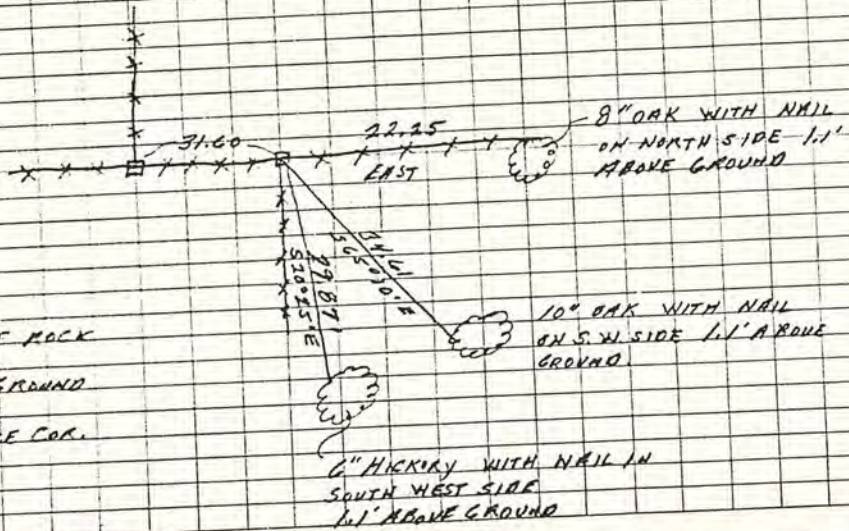 31.60
22.25
EAST
8" OAK WITH NAIL
ON NORTH SIDE 1.1'
ABOVE GROUND
34.61
S65°30'E
29.87'
S20°25'E
10" OAK WITH NAIL
ON S.W. SIDE 1.1' ABOVE
GROUND.
ROCK
GROUND
COR.
6" HICKORY WITH NAIL IN
SOUTH WEST SIDE
1.1' ABOVE GROUND